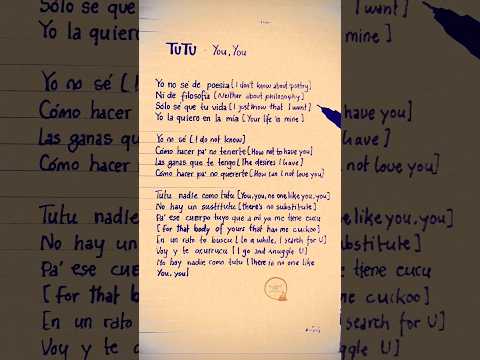 TUTU - You, You
Yo no sé de poesía [I don't know about poetry]
Ni de filosofía [Neither about philosophy]
Sólo sé que tu vida [I just know that I want]
Yo la quiero en la mía [Your life is mine]
Yo no sé [I do not know]
Cómo hacer pa' no tenerte [How not to have you]
Las ganas que te tengo [The desires I have]
Cómo hacer pa' no quererte [How can I not love you]
Tutu nadie como tutu [You, you, no one like you, you]
No hay un sustituto [there's no substitute]
Pa' ese cuerpo tuyo que a mi ya me tiene cucu
[for that body of yours that has me cuckoo]
En un rato te busco [In a while, I search for U]
Voy y te acurrucu [I go and snuggle U]
No hay nadie como tutu [There is no one like
You, you]
Sólo se que
Yo la quiere
Yo no sé [
Cómo hacer
Las ganas
Cómo hacer
Tutu nadie
No hay un
Pa' ese cu
[for that
En un ra
Voy y te
I want]
is mine]
have you]
have]
not love you]
like you, you]
substitute]
tiene cucu
cuckoo]
search for U]
snuggle U]